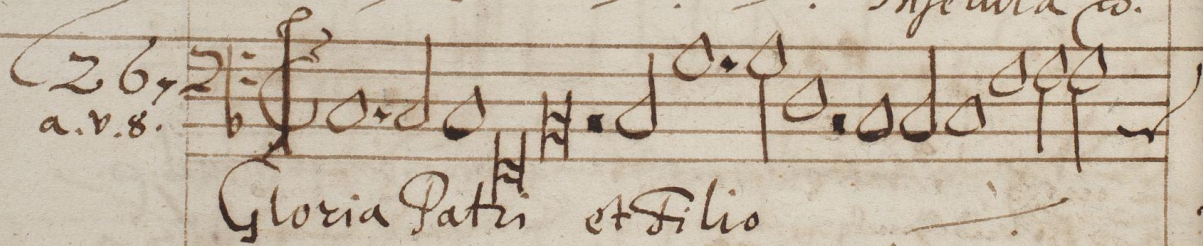 267
a. v. 8.
Gloria Patri et Filio